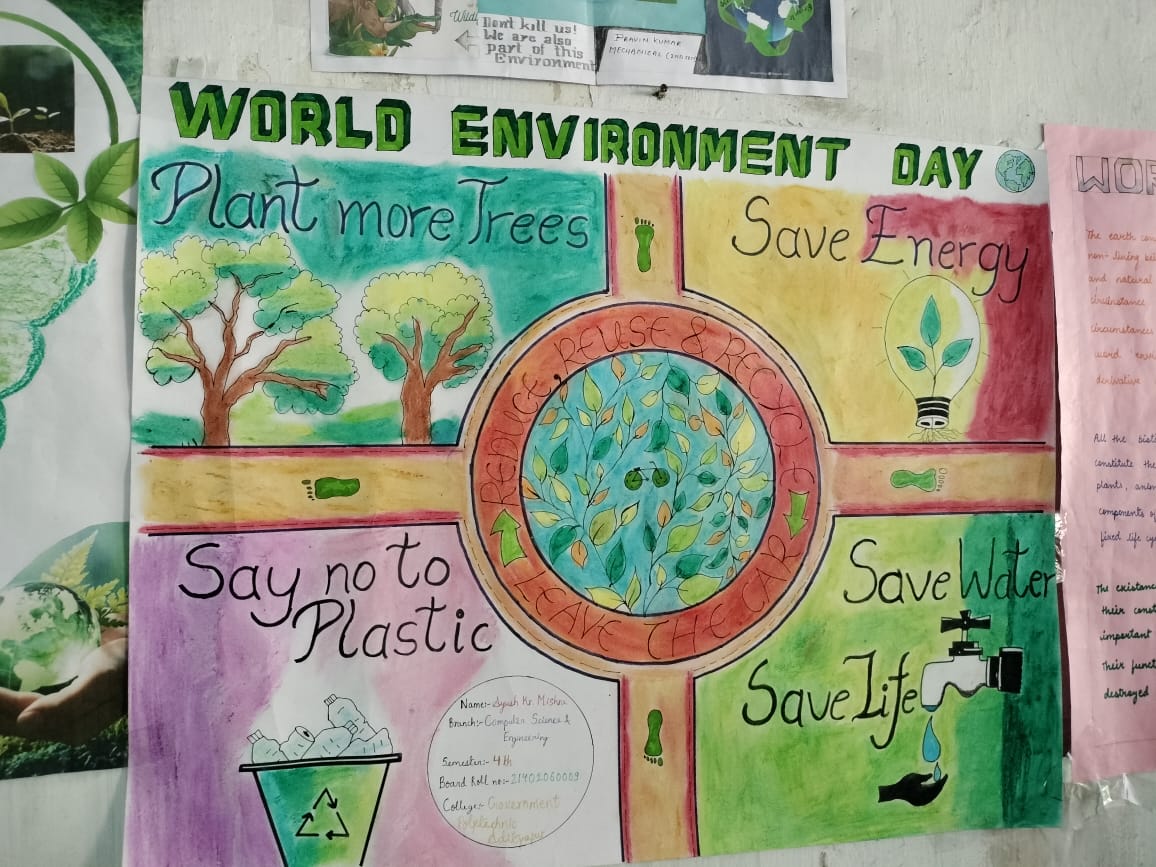 Dont kill us!
We are also
part of this
Environment
PRAVIN KUMAR
MECHANICAL
WORLD ENVIRONMENT DAY
Plant more Trees
Save Energy
REDUCE, REUSE & RECYCLE
LEAVE THE CAR
Say no to
Plastic
Save Water
Save Life
Name:- Ayush Kr. Mishra
Branch:- Computer Science &
Engineering
Semester:- 4th
Board Roll no:- 21402060009
College:- Government
The earth
and natural
circumstance
circumstances
derivative
All the
constitute the
plants,
components of
fixed life
The existance
their
important
Their
destroyed